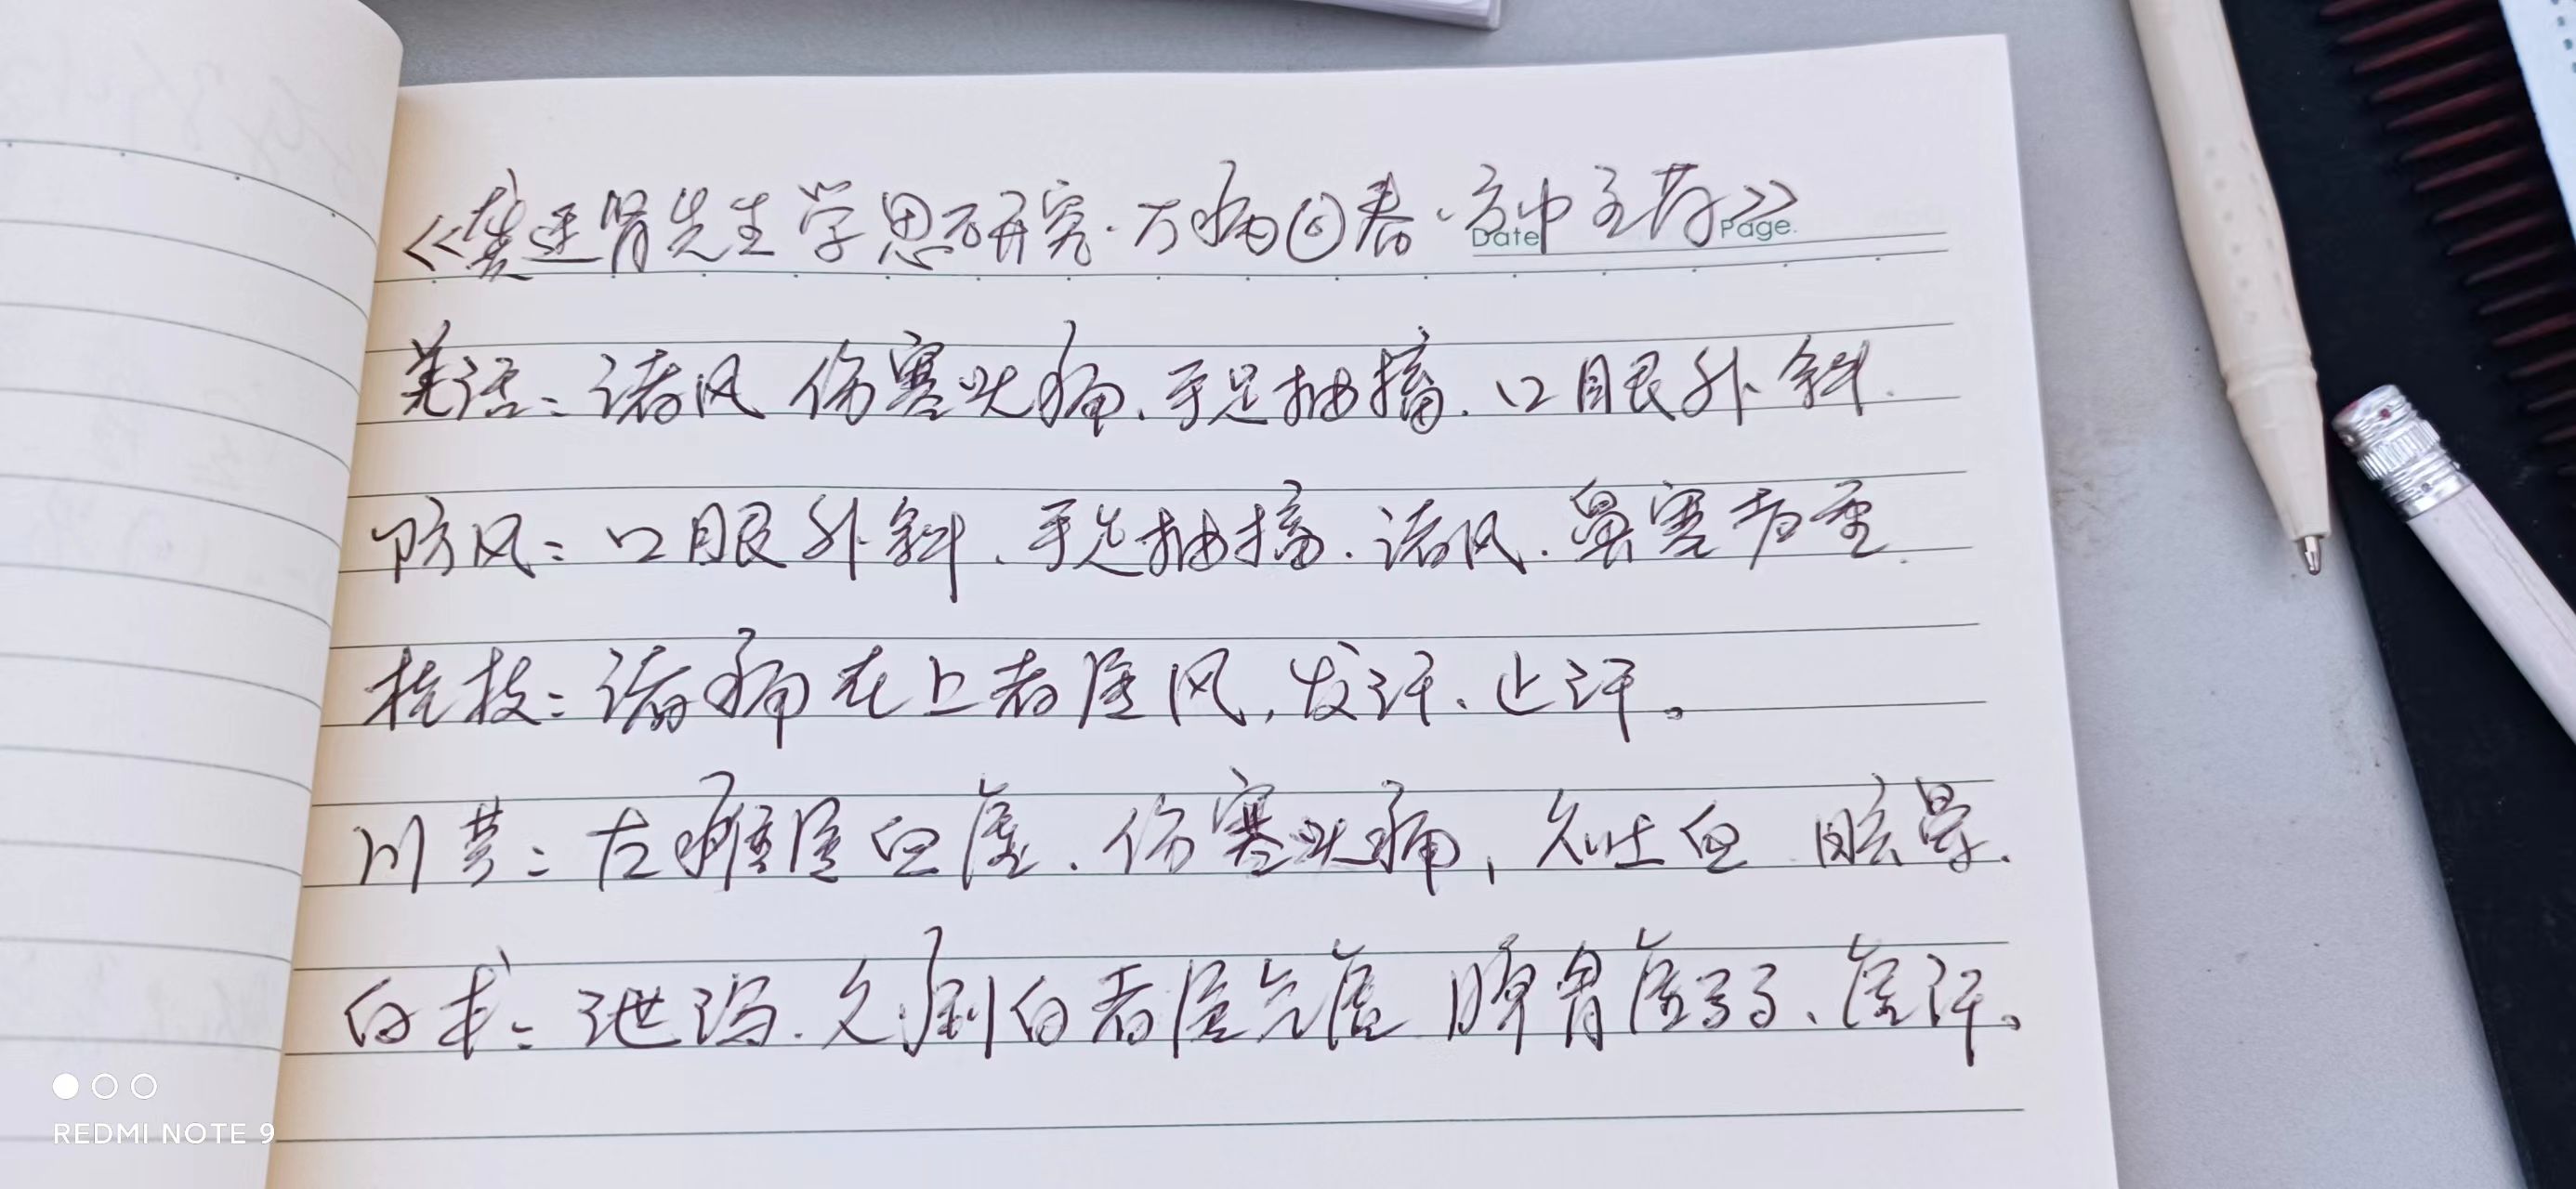 《龚廷贤先生学思研究·万病回春·方中主药》
Date Page.
羌活：诸风 伤寒头痛、手足抽搐．口眼外斜．
防风：口眼外斜、手足抽搐．诸风．鼻塞声重．
桂枝：诸痛在上者属风，发汗、止汗。
川芎：左瘫属血虚．伤寒头痛，久吐血 眩晕．
白术：泄泻．久痢白者属气虚 脾胃虚弱、虚汗。
REDMI NOTE 9